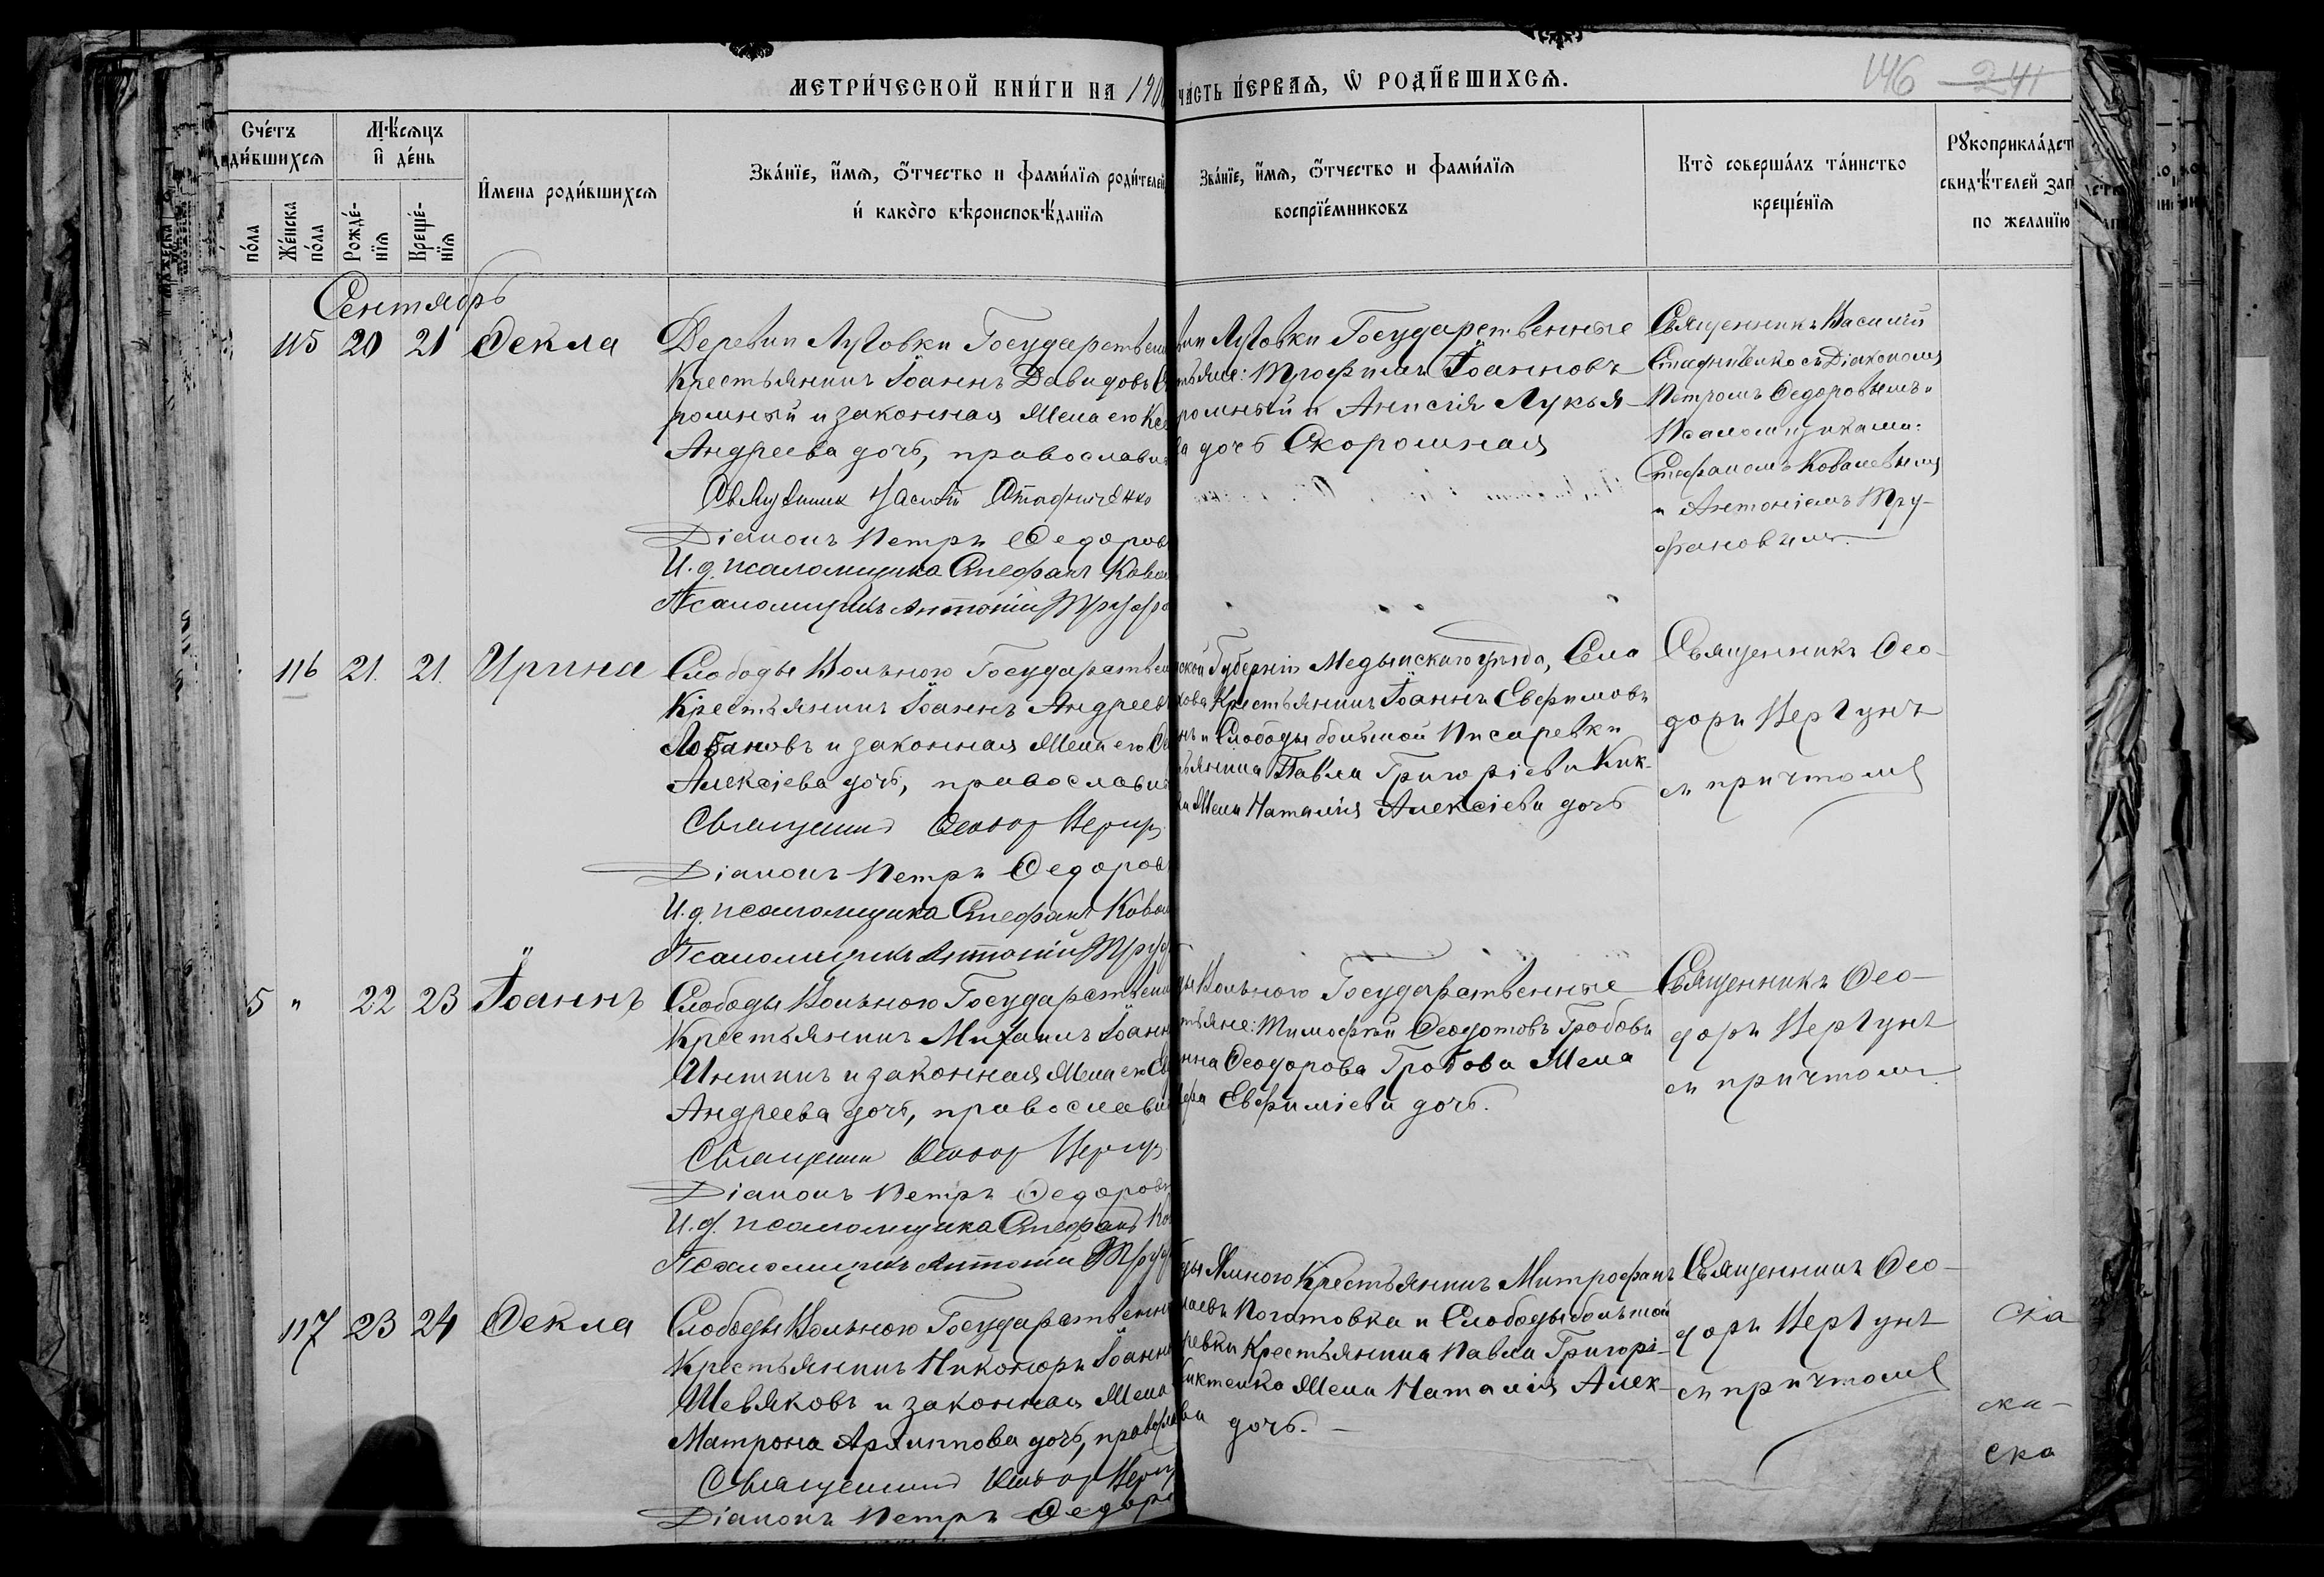 МЕТРИ́ЧЕСКОЙ КНИ́ГИ НА 190
ЧА́СТЬ ПЕ́РВАЯ, Ѿ РОДИ́ВШИХСЯ.
146 241
Сче́тъ
роди́вшихся
Мѣ́сяцъ
и де́нь
Имена роди́вшихся
Зва́нїе, и́мя, ѻ́тчество и фами́лїя роди́телей
и́ како́го вѣроисповѣ́данїя
Зва́нїе, и́мя, ѻ́тчество и фами́лїя
воспрїе́мниковъ
Кто̀ соверша́лъ та́инство
креще́нїя
Рꙋкоприкла́дст
свидѣ́телей зап
по желанїю
по́ла
Же́нска
по́ла
Рожде́-
нїя
Креще́-
нїя
Сентябрь
115 20 21 Ѳекла
Деревни Луговки Государствен
Крестьянинъ Іоаннъ Давидовъ С
ромный и законная Жена его Кс
Андреева дочь, православн
Священник Василій Стадниченко
Діаконъ Петръ Ѳедоров
И. д. псаломщика Стефанъ Ковал
Псаломщикъ Антоній Труфа
вни Луговки Государственные
тьяне: Трофимъ Іоанновъ
ромный и Анисія Лукья-
ва дочь Скоромная
Священникъ Василій
Стадниченко съ Діакономъ
Петромъ Ѳедоровымъ и
Псаломщиками:
Стефаномъ Ковалевымъ
и Антоніемъ Тру-
фановымъ.
116 21. 21. Ирина
Слободы Вольного Государствен
Крестьянинъ Іоаннъ Андреев
Лобановъ и законная Жена его
Алексіева дочь, православн
Священник Ѳеодор Вергун
Діаконъ Петръ Ѳедоровъ
И. д. псаломщика Стефанъ Ковал
Псаломщикъ Антоній Труф
ской Губерніи Медынскаго уѣзда, Села
кова Крестьянинъ Іоаннъ Евфимовъ
нъ и Слободы большой Писаревки
тьянина Павла Григоріева Кик-
ка Жена Наталія Алексіева дочь
Священникъ Ѳео-
доръ Вергунъ
съ причтомъ
5 " 22 23 Іоаннъ
Слободы Вольного Государствен
Крестьянинъ Михаилъ Іоанн
Иншинъ и законная Жена его
Андреева дочь, православн
Священник Ѳеодор Вергун
Діаконъ Петръ Ѳедоровъ
И. д. псаломщика Стефанъ Ко
Псаломщикъ Антоній Труф
ды Вольного Государственные
тьяне: Тимофей Ѳеодотовъ Гробовъ
нна Ѳеодорова Гробова Жена
ера Евфиміева дочь.
Священникъ Ѳео-
доръ Вергунъ
съ причтомъ
117 23 24 Ѳекла
Слободы Вольного Государственн
Крестьянинъ Никоноръ Іоанн
Шевяковъ и законная Жена
Матрона Архиппова дочь, правосла
Священник Ѳеодор Вергун
Діаконъ Петръ Ѳедоро
ды Ямного Крестьянинъ Митрофанъ
лаевъ Коготовка и Слободы большой
ревки Крестьянина Павла Григорі-
Киктенко Жена Наталія Алек-
ва дочь. –
Священникъ Ѳео-
доръ Вергунъ
съ причтомъ
ска
ска-
ска